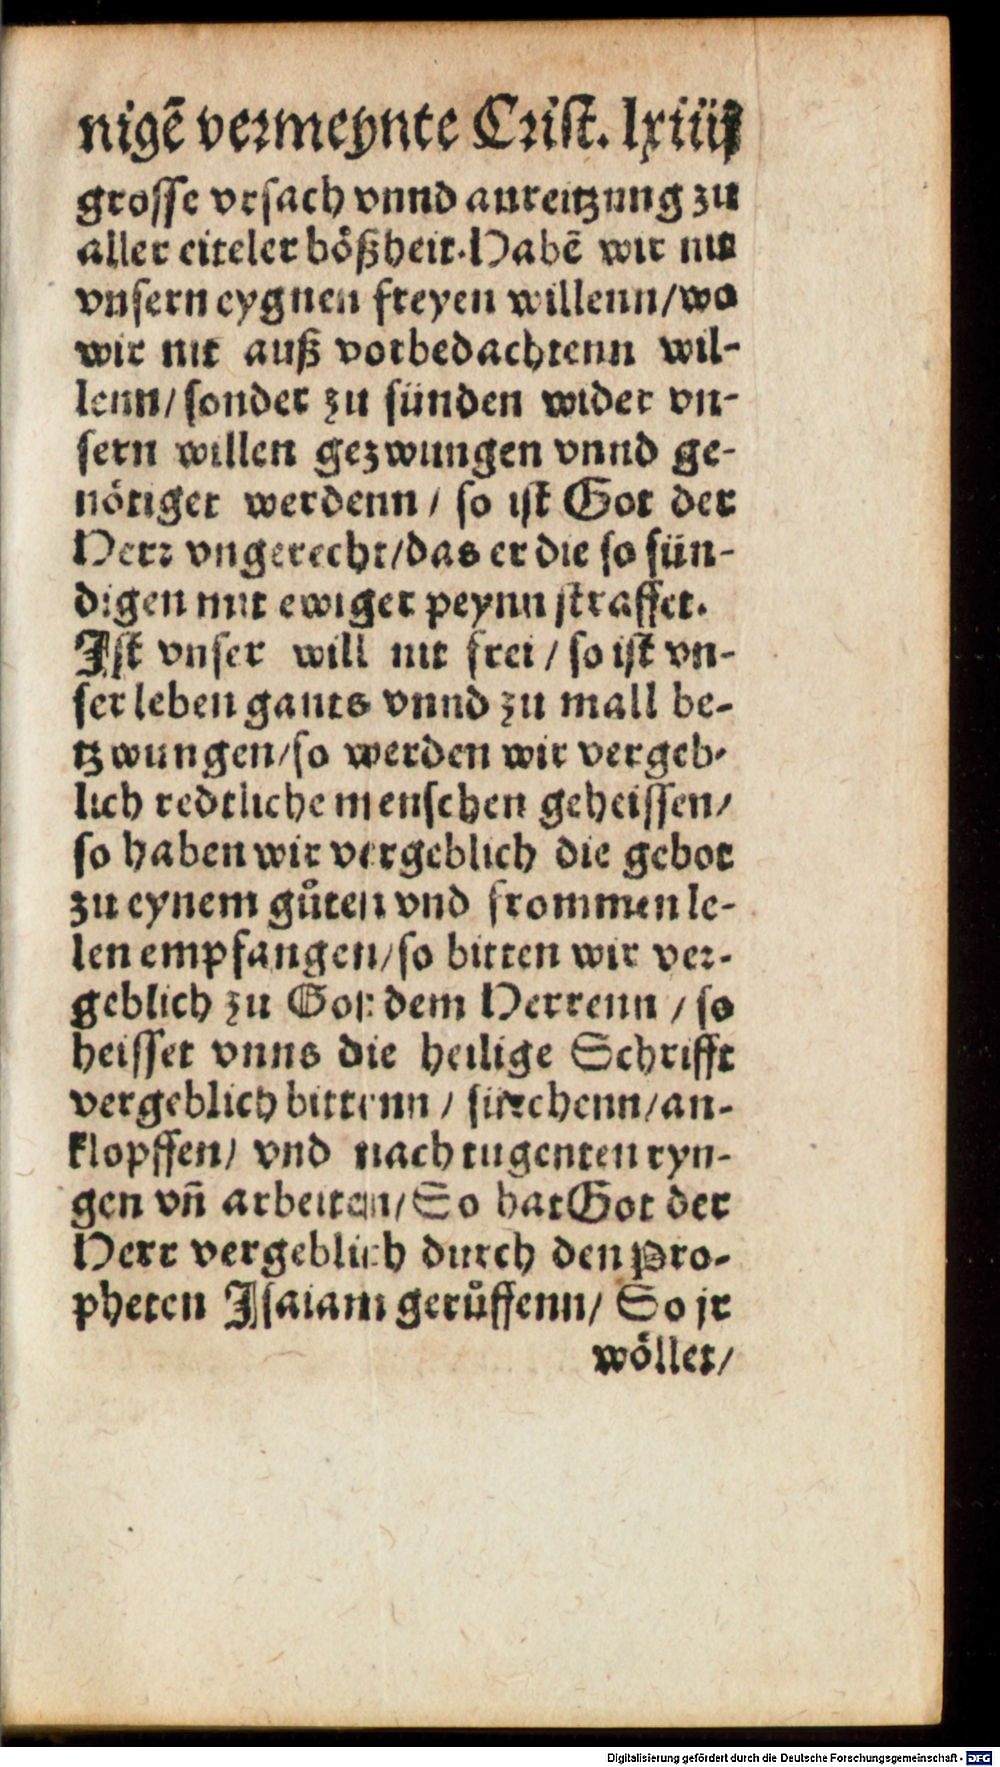 nigē vermeynte Crist. lxiiij
grosse vrsach vnnd anreitzung zu
aller eiteler bößheit. Habē wir nit
vnsern eygnen freyen willenn/ wo
wir nit auß vorbedachtenn wil-
lenn/ sonder zu sünden wider vn-
sern willen gezwungen vnnd ge-
nötiget werdenn/ so ist Got der
Herr vngerecht/ das er die so sün-
digen mit ewiger peynn straffet.
Ist vnser will nit frei/ so ist vn-
ser leben gants vnnd zu mall be-
tzwungen/ so werden wir vergeb-
lich redtliche menschen geheissen/
so haben wir vergeblich die gebot
zu eynem gůten vnd frommen le-
len empfangen/ so bitten wir ver-
geblich zu Got dem Herrenn/ so
heisset vnns die heilige Schrifft
vergeblich bittenn/ sůchenn/ an-
klopffen/ vnd nach tugenten ryn-
gen vn̄ arbeiten/ So hat Got der
Herr vergeblich durch den Pro-
pheten Isaiam gerůffenn/ So jr
wöllet/
Digitalisierung gefördert durch die Deutsche Forschungsgemeinschaft - DFG